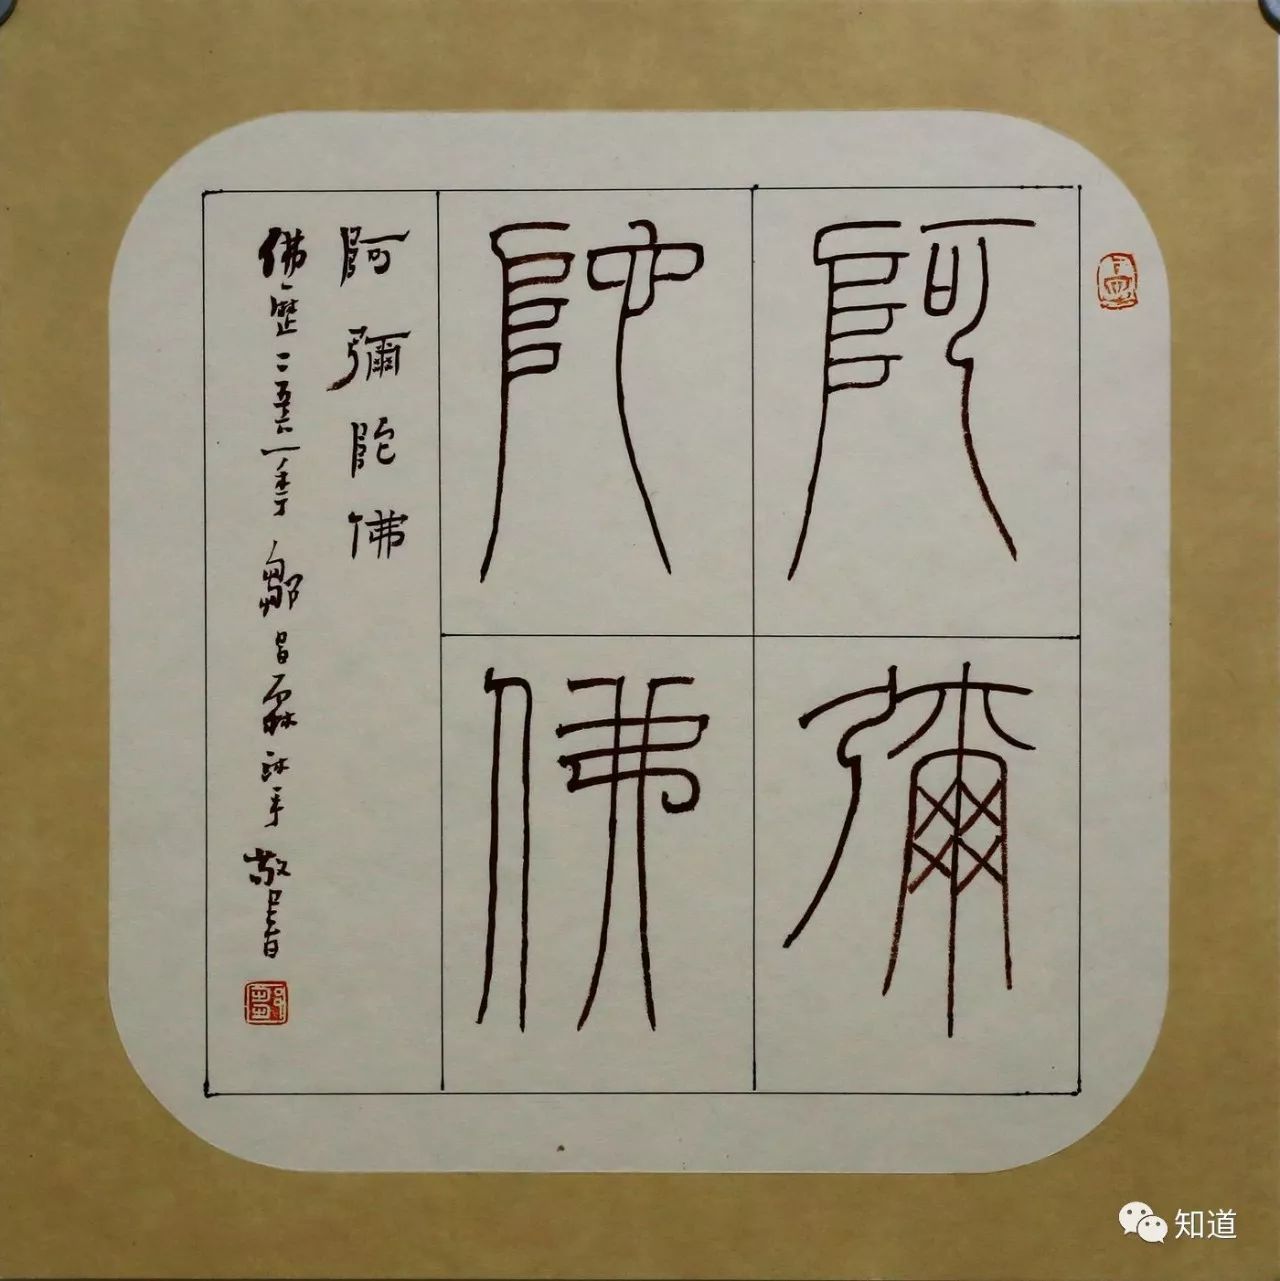 阿彌
陀佛
阿彌陀佛
佛歷二五六一季鄒昌霖沐手敬書
知道